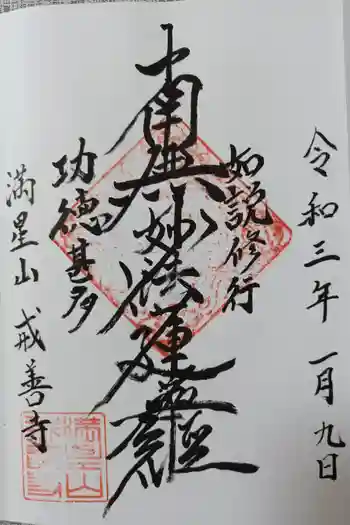 令和三年 一月九日
如説修行
南無妙法蓮華経
功徳甚多
満星山 戒善寺